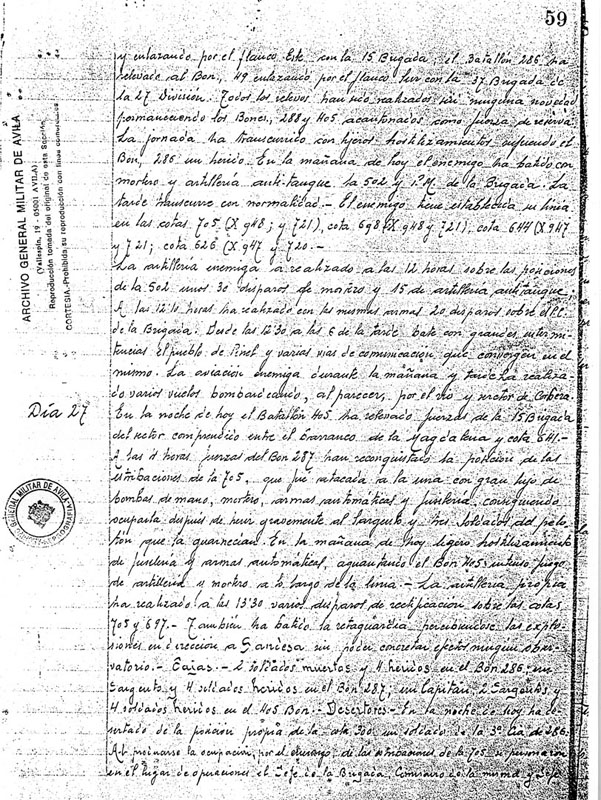 59
ARCHIVO GENERAL MILITAR DE AVILA
(Vallespín, 19 - 05001 AVILA)
Reproducción tomada del original de esta Sección
CORTESIA-Prohibida su reproducción con fines comerciales
y enlazando por el flanco Este con la 15 Brigada, el Batallón 286 ha
relevado al Bon, 49 enlazando por el flanco Sur con la 37 Brigada de
la 27 División. Todos los relevos han sido realizados sin ninguna novedad
permaneciendo los Bones, 288 y 405 acantonados como fuerza de reserva.
La jornada ha transcurrido con lijeros hostilizamientos sufriendo el
Bon, 286 un herido. En la mañana de hoy el enemigo ha batido con
mortero y artillería anti-tanque la 502 y de la Brigada. La
tarde transcurre con normalidad. - El enemigo tiene establecida su línea
en las cotas 705 (X 948; y 721), cota 698 (X 948 y 721), cota 644 (X 947
y 721; cota 626 (X 947 y 720. -
La artillería enemiga a realizado a las 12 horas sobre las posiciones
de la 502 unos 30 disparos de mortero y 15 de artillería antitanque;
A las 12'10 horas ha realizado con las mismas armas 20 disparos sobre el P.C.
de la Brigada. Desde las 12'30 a las 6 de la tarde bate con grandes intermi-
tencias el pueblo de Pinell y varias vías de comunicación que convergen en el
mismo. La aviación enemiga durante la mañana y tarde ha realiza-
do varios vuelos bombardeando, al parecer, por el río y sector de Corbera.
Día 27
En la noche de hoy el Batallón 405 ha relevado fuerzas de la 15 Brigada
del sector comprendido entre el barranco de la Magdalena y cota 641. -
A las horas fuerzas del Bon 287 han reconquistado la posición de las
estribaciones de la 705, que fue atacada a la una con gran lujo de
bombas de mano, mortero, armas automáticas y fusilería, consiguiendo
ocuparla despues de herir gravemente al Sargento y tres soldados del pelo-
tón que la guarnecían. En la mañana de hoy ligero hostilizamiento
de fusilería y armas automáticas, aguantando el Bon 405 intenso fuego
de artillería y mortero a lo largo de la línea. - La artillería propia
ha realizado a las 13'30 varios disparos de rectificación sobre las cotas
705 y 697. - También ha batido la retaguardia percibiéndose las explo-
siones en dirección a Gandesa sin poder concretar efectos ningún obser-
vatorio. - Bajas. - 2 soldados muertos y 4 heridos en el Bon 286; un
Sargento y 4 soldados heridos en el Bon 287; un Capitán, 2 Sargentos, y
4 soldados heridos en el 405 Bon. - Desertores. - En la noche de hoy ha de-
sertado de la posición propia de la cota un soldado de la 3ª Cia de 286.
Al la ocupación, por el enemigo, de las estribaciones de la 705 se personaron
en el lugar de operaciones el Jefe de la Brigada, Comisario de la misma y Jefe